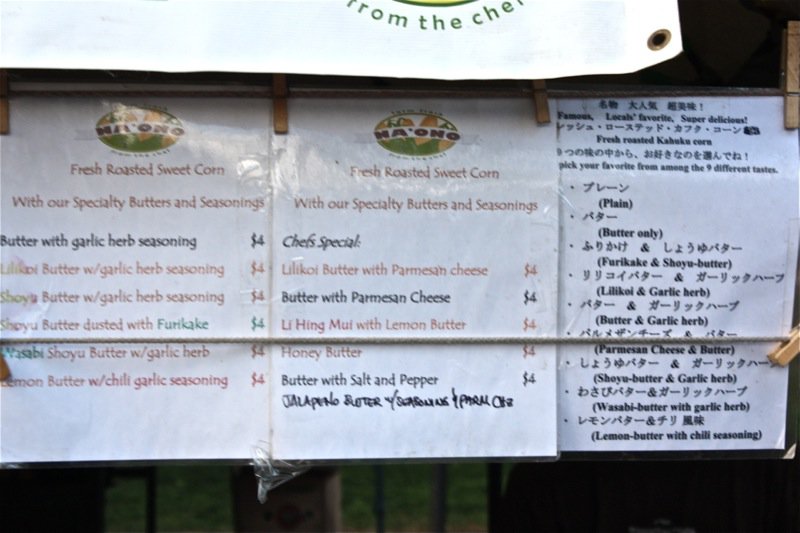 from the chef
farm fresh
MA'ONO
from the chef
Fresh Roasted Sweet Corn
With our Specialty Butters and Seasonings
Butter with garlic herb seasoning $4
Lilikoi Butter w/garlic herb seasoning $4
Shoyu Butter w/garlic herb seasoning $4
Shoyu Butter dusted with Furikake $4
Wasabi Shoyu Butter w/garlic herb $4
Lemon Butter w/chili garlic seasoning $4
farm fresh
MA'ONO
from the chef
Fresh Roasted Sweet Corn
With our Specialty Butters and Seasonings
Chefs Special:
Lilikoi Butter with Parmesan cheese $4
Butter with Parmesan Cheese $4
Li Hing Mui with Lemon Butter $4
Honey Butter $4
Butter with Salt and Pepper $4
JALAPENO BUTTER W/SEASONING & PARM CHZ
名物 大人気 超美味!
Famous, Locals' favorite, Super delicious!
レッシュ・ローステッド・カフク・コーン
Fresh roasted Kahuku corn
9つの味の中から、お好きなのを選んでね!
pick your favorite from among the 9 different tastes.
・ プレーン
(Plain)
・ バター
(Butter only)
・ ふりかけ & しょうゆバター
(Furikake & Shoyu-butter)
・ リリコイバター & ガーリックハーブ
(Lilikoi & Garlic herb)
・ バター & ガーリックハーブ
(Butter & Garlic herb)
・ パルメザンチーズ & バター
(Parmesan Cheese & Butter)
・ しょうゆバター & ガーリックハーブ
(Shoyu-butter & Garlic herb)
・ わさびバター&ガーリックハーブ
(Wasabi-butter with garlic herb)
・ レモンバター&チリ風味
(Lemon-butter with chili seasoning)